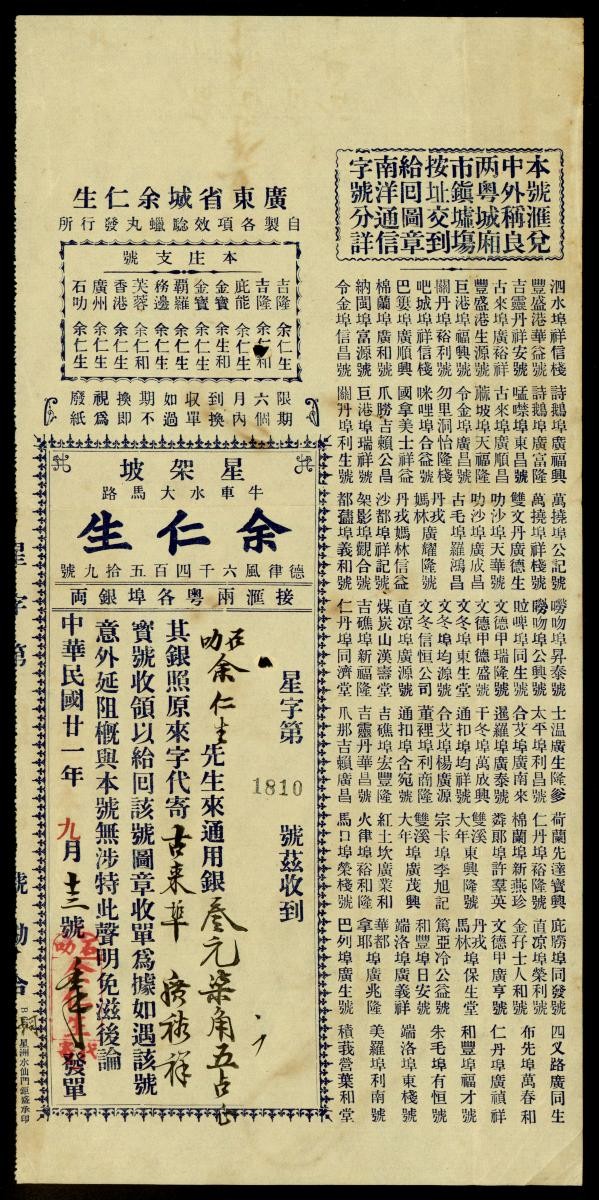 本號滙兌
中外稱良
两粤城廂
市鎮墟塲
按址交到
給回圖章
南洋通信
字號分詳
泗水埠祥信棧
豐盛港華益號
吉靈丹祥安號
古來埠廣裕祥
豐盛港生源號
巨港埠福興號
關丹埠裕利號
吧城埠祥信棧
巴𥴊埠廣順興
棉蘭埠廣和號
納閩埠富源號
令金埠信昌號
詩鵝埠廣福興
詩鵝埠廣富隆
嗌㗎埠東昌號
古來埠廣順昌
蔴坡埠天福隆
令金埠廣昌號
勿里洞怡隆棧
咪哩埠合益號
國拿美士祥益
爪勝吉賴公昌
巨港埠瑞祥號
關丹埠利生號
萬撓埠公記號
萬撓埠祥棧號
雙文丹廣德生
叻沙埠天華號
叻沙埠廣成昌
古毛埠羅鴻昌
丹戎
媽林 廣耀隆號
丹戎媽林信益
沙都埠祥記號
架影埠觀合號
都𧖟埠義和號
嘮吻埠昇泰號
嘮吻埠公興號
㕸啤埠同生號
文德甲瑞隆號
文德甲德盛號
文冬埠東生堂
文冬埠均源號
文冬信恒公司
直凉埠廣源號
煤炭山漢壽堂
吉礁埠新福隆
仁丹埠同濟堂
士温廣生隆爹
太平埠利昌號
合艾埠廣南來
暹羅埠廣泰號
干冬埠萬成興
通扣埠均祥號
合艾埠楊廣源
董裡埠利商隆
通扣埠含宛號
吉礁埠宏豐隆
吉靈丹華昌號
爪那吉賴廣昌
荷蘭先達寶興
仁丹埠裕隆號
棉蘭埠新燕珍
粦耶埠許羣英
雙溪
大年 東興隆號
宗卡埠李旭記
雙溪
大年 埠廣茂興
紅土坎廣業和
火律埠裕和隆
馬口埠榮棧號
庇勝埠同發號
直凉埠榮利號
金孖士人和號
文德甲廣亨號
丹戎
馬林 埠保生堂
篤亞冷公益號
和豐埠日安號
端洛埠廣義祥
華都
拿耶 埠廣兆隆
巴列埠廣生號
四叉路廣同生
布先埠萬春和
仁丹埠廣禎祥
和豐埠福才號
朱毛埠有恒號
端洛埠東棧號
美羅埠利南號
積莪營葉和堂
廣東省城余仁生
自製各項效騐蠟丸發行所
本庄支號
吉隆 余仁生
吉隆 余仁和
庇能 余仁生
金寶 余生和
金寶 余仁生
霸羅 余仁生
務邊 余仁生
芙蓉 余仁生
香港 余仁生
廣州 余仁生
石叻 余仁生
限期
六個
月內
到換
收單
如過
期不
換即
視爲
廢紙
星架坡
牛車水大馬路
余仁生
德律風六千四百五拾九號
接滙兩粤各埠銀両
星字第 1810 號茲收到
石叻余仁生先生來通用銀叁元柒角五占正
其銀照原來字代寄古来埠 廣裕祥
寳號收領以給回該號圖章收單爲據如遇該號
意外延阻概與本號無涉特此聲明免滋後論
中華民國廿一年 九月 十三號 發單
星洲水仙門鉅盛承印